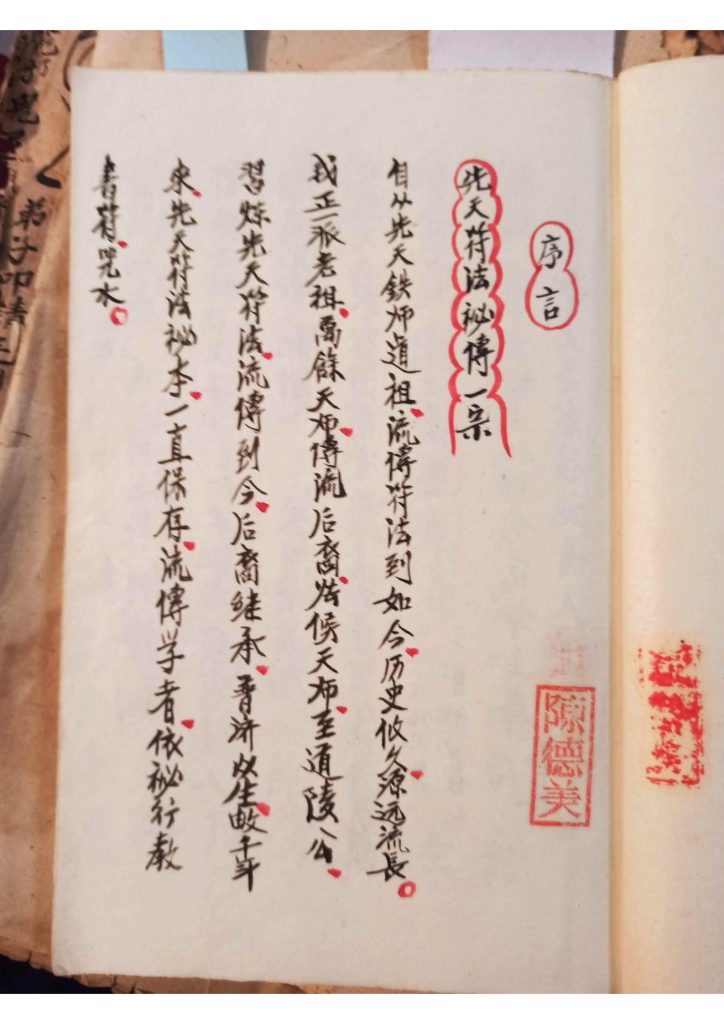 序言
先天符法祕傳一宗
自从先天鉄师道祖流傳符法到如今历史攸久源远流長
我正一派老祖萬餘天师傳流后裔 候天师至道陵公
習炼先天符法流傳到今后裔継承普济 生 千年
来先天符法祕本一直保存流傳学者依祕行教
書符咒水
陳德美
弟子叩請